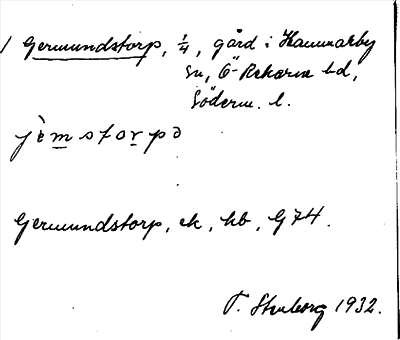 Germundstorp, 1/4, gård i Hammarby
sn, Ö-Rekarne hd,
Söderm. l.
jèmstorpə
Germundstorp, ek, hb, G74.
T. Stenborg 1932.